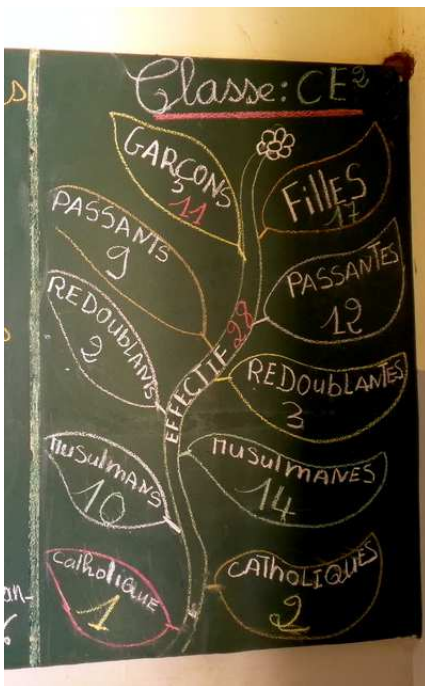 Classe: CE2
GARÇONS
11
FillES
17
PASSANTS
9
PASSANTES
12
REDOUBLANTS
2
REDOUBLANTES
3
EFFECTIF 28
MUSULMANS
10
MUSULMANES
14
CATHOLIQUE
1
CATHOLIQUES
2